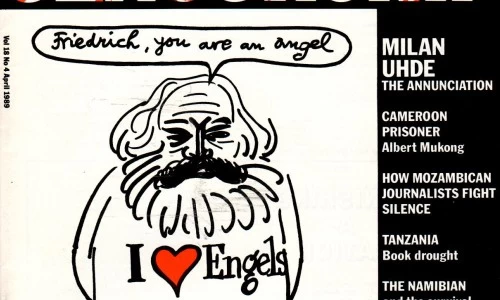 Friedrich, you are an angel
Vol 18 No 4 April 1989
I Engels
MILAN
UHDE
THE ANNUNCIATION
CAMEROON
PRISONER
Albert Mukong
HOW MOZAMBICAN
JOURNALISTS FIGHT
SILENCE
TANZANIA
Book drought
THE NAMIBIAN
and the survival